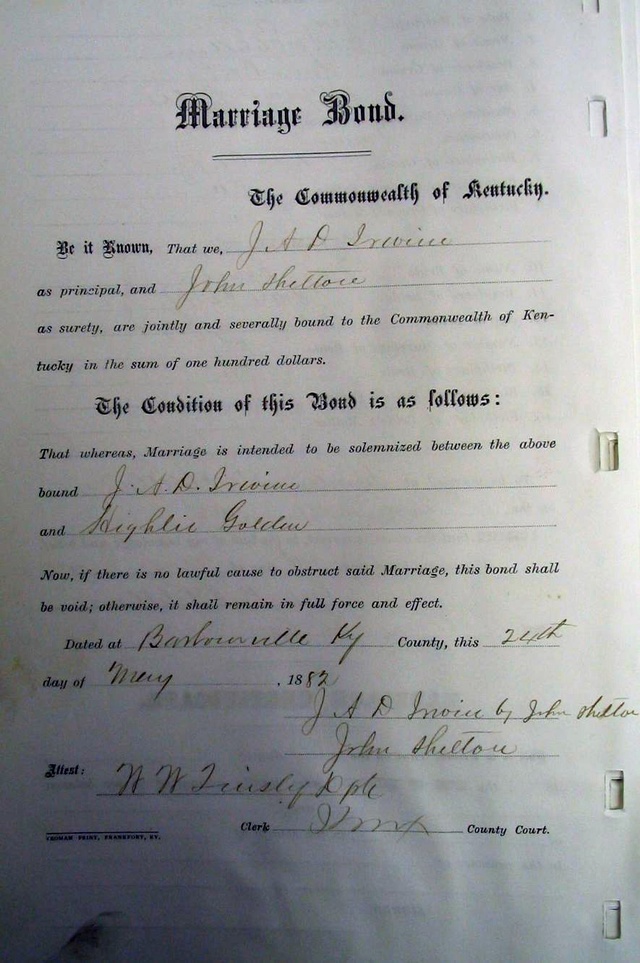 Marriage Bond.
The Commonwealth of Kentucky.
Be it Known, That we, J A D Irvine
as principal, and John Shelton
as surety, are jointly and severally bound to the Commonwealth of Ken-
tucky in the sum of one hundred dollars.
The Condition of this Bond is as follows:
That whereas, Marriage is intended to be solemnized between the above
bound J. A. D. Irvine
and Highlie Golden
Now, if there is no lawful cause to obstruct said Marriage, this bond shall
be void; otherwise, it shall remain in full force and effect.
Dated at Barbourville Ky County, this 24th
day of May , 1882
J A D Irvine by John Shelton
John Shelton
Attest: W W Tinsley
Clerk Knox County Court.
YEOMAN PRINT, FRANKFORT, KY.